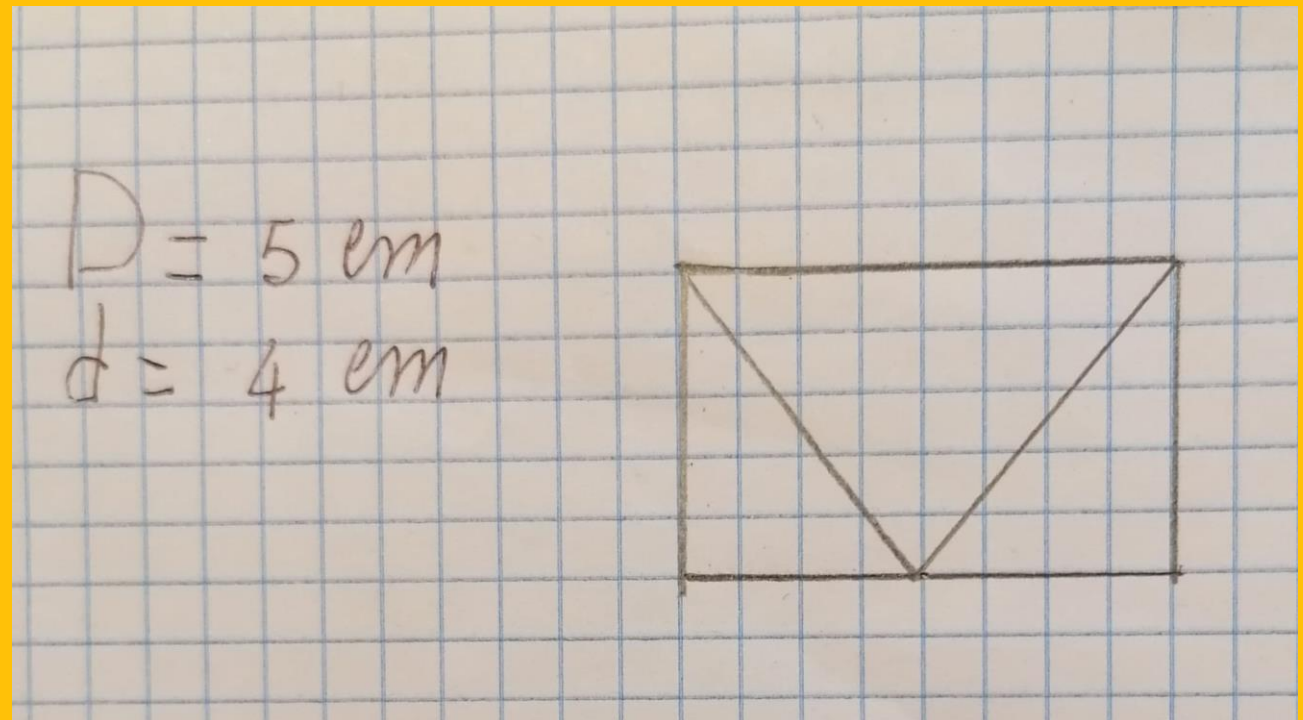 D = 5 cm
d = 4 cm